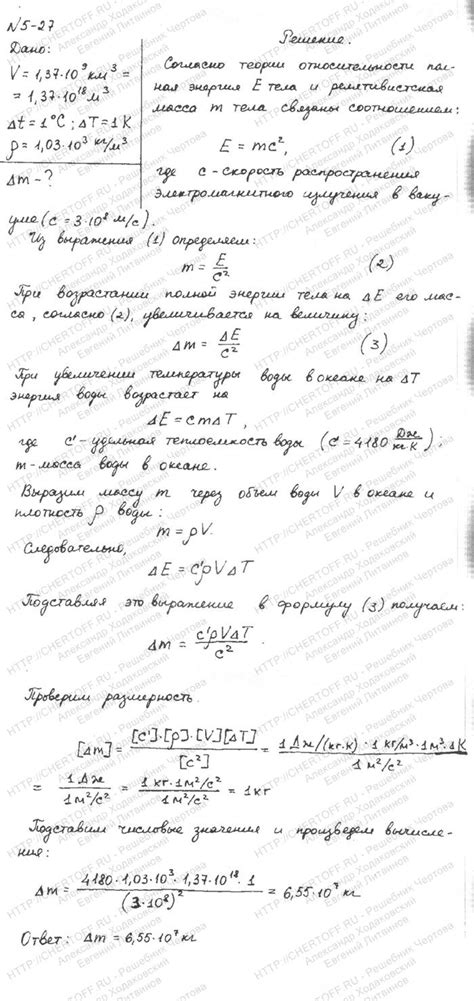 N5-27
Дано:
V = 1,37·10⁹ км³ =
= 1,37·10¹⁸ м³
Δt = 1°C; ΔT = 1 K
ρ = 1,03·10³ кг/м³
Δm - ?
Решение.
Согласно теории относительности пол-
ная энергия E тела и релятивистская
масса m тела связаны соотношением:
E = mc², (1)
где c - скорость распространения
электромагнитного излучения в ваку-
уме (c = 3·10⁸ м/с).
Из выражения (1) определяем:
m = E/c² (2)
При возрастании полной энергии тела на ΔE его мас-
са, согласно (2), увеличивается на величину:
Δm = ΔE/c² (3)
При увеличении температуры воды в океане на ΔT
энергия воды возрастает на
ΔE = cmΔT,
где c' - удельная теплоемкость воды (c = 4180 Дж/кг·К);
m - масса воды в океане.
Выразим массу m через объем воды V в океане и
плотность ρ воды:
m = ρV.
Следовательно,
ΔE = c'ρVΔT
Подставляя это выражение в формулу (3) получаем:
Δm = c'ρVΔT/c².
Проверим размерность.
[Δm] = [c']·[ρ]·[V][ΔT]/[c²] = 1 Дж/(кг·к)·1 кг/м³·1м³·1К/1 м²/с²
= 1 Дж/1м²/с² = 1 кг·1м²/с²/1м²/с² = 1кг
Подставим числовые значения и произведем вычисле-
ния:
Δm = 4180·1,03·10³·1,37·10¹⁸·1/(3·10⁸)² = 6,55·10⁷ кг
Ответ: Δm = 6,55·10⁷ кг
HTTP://CHERTOFF.RU - Решебник Чертова
Александр Ходаковский
Евгений Литвинов